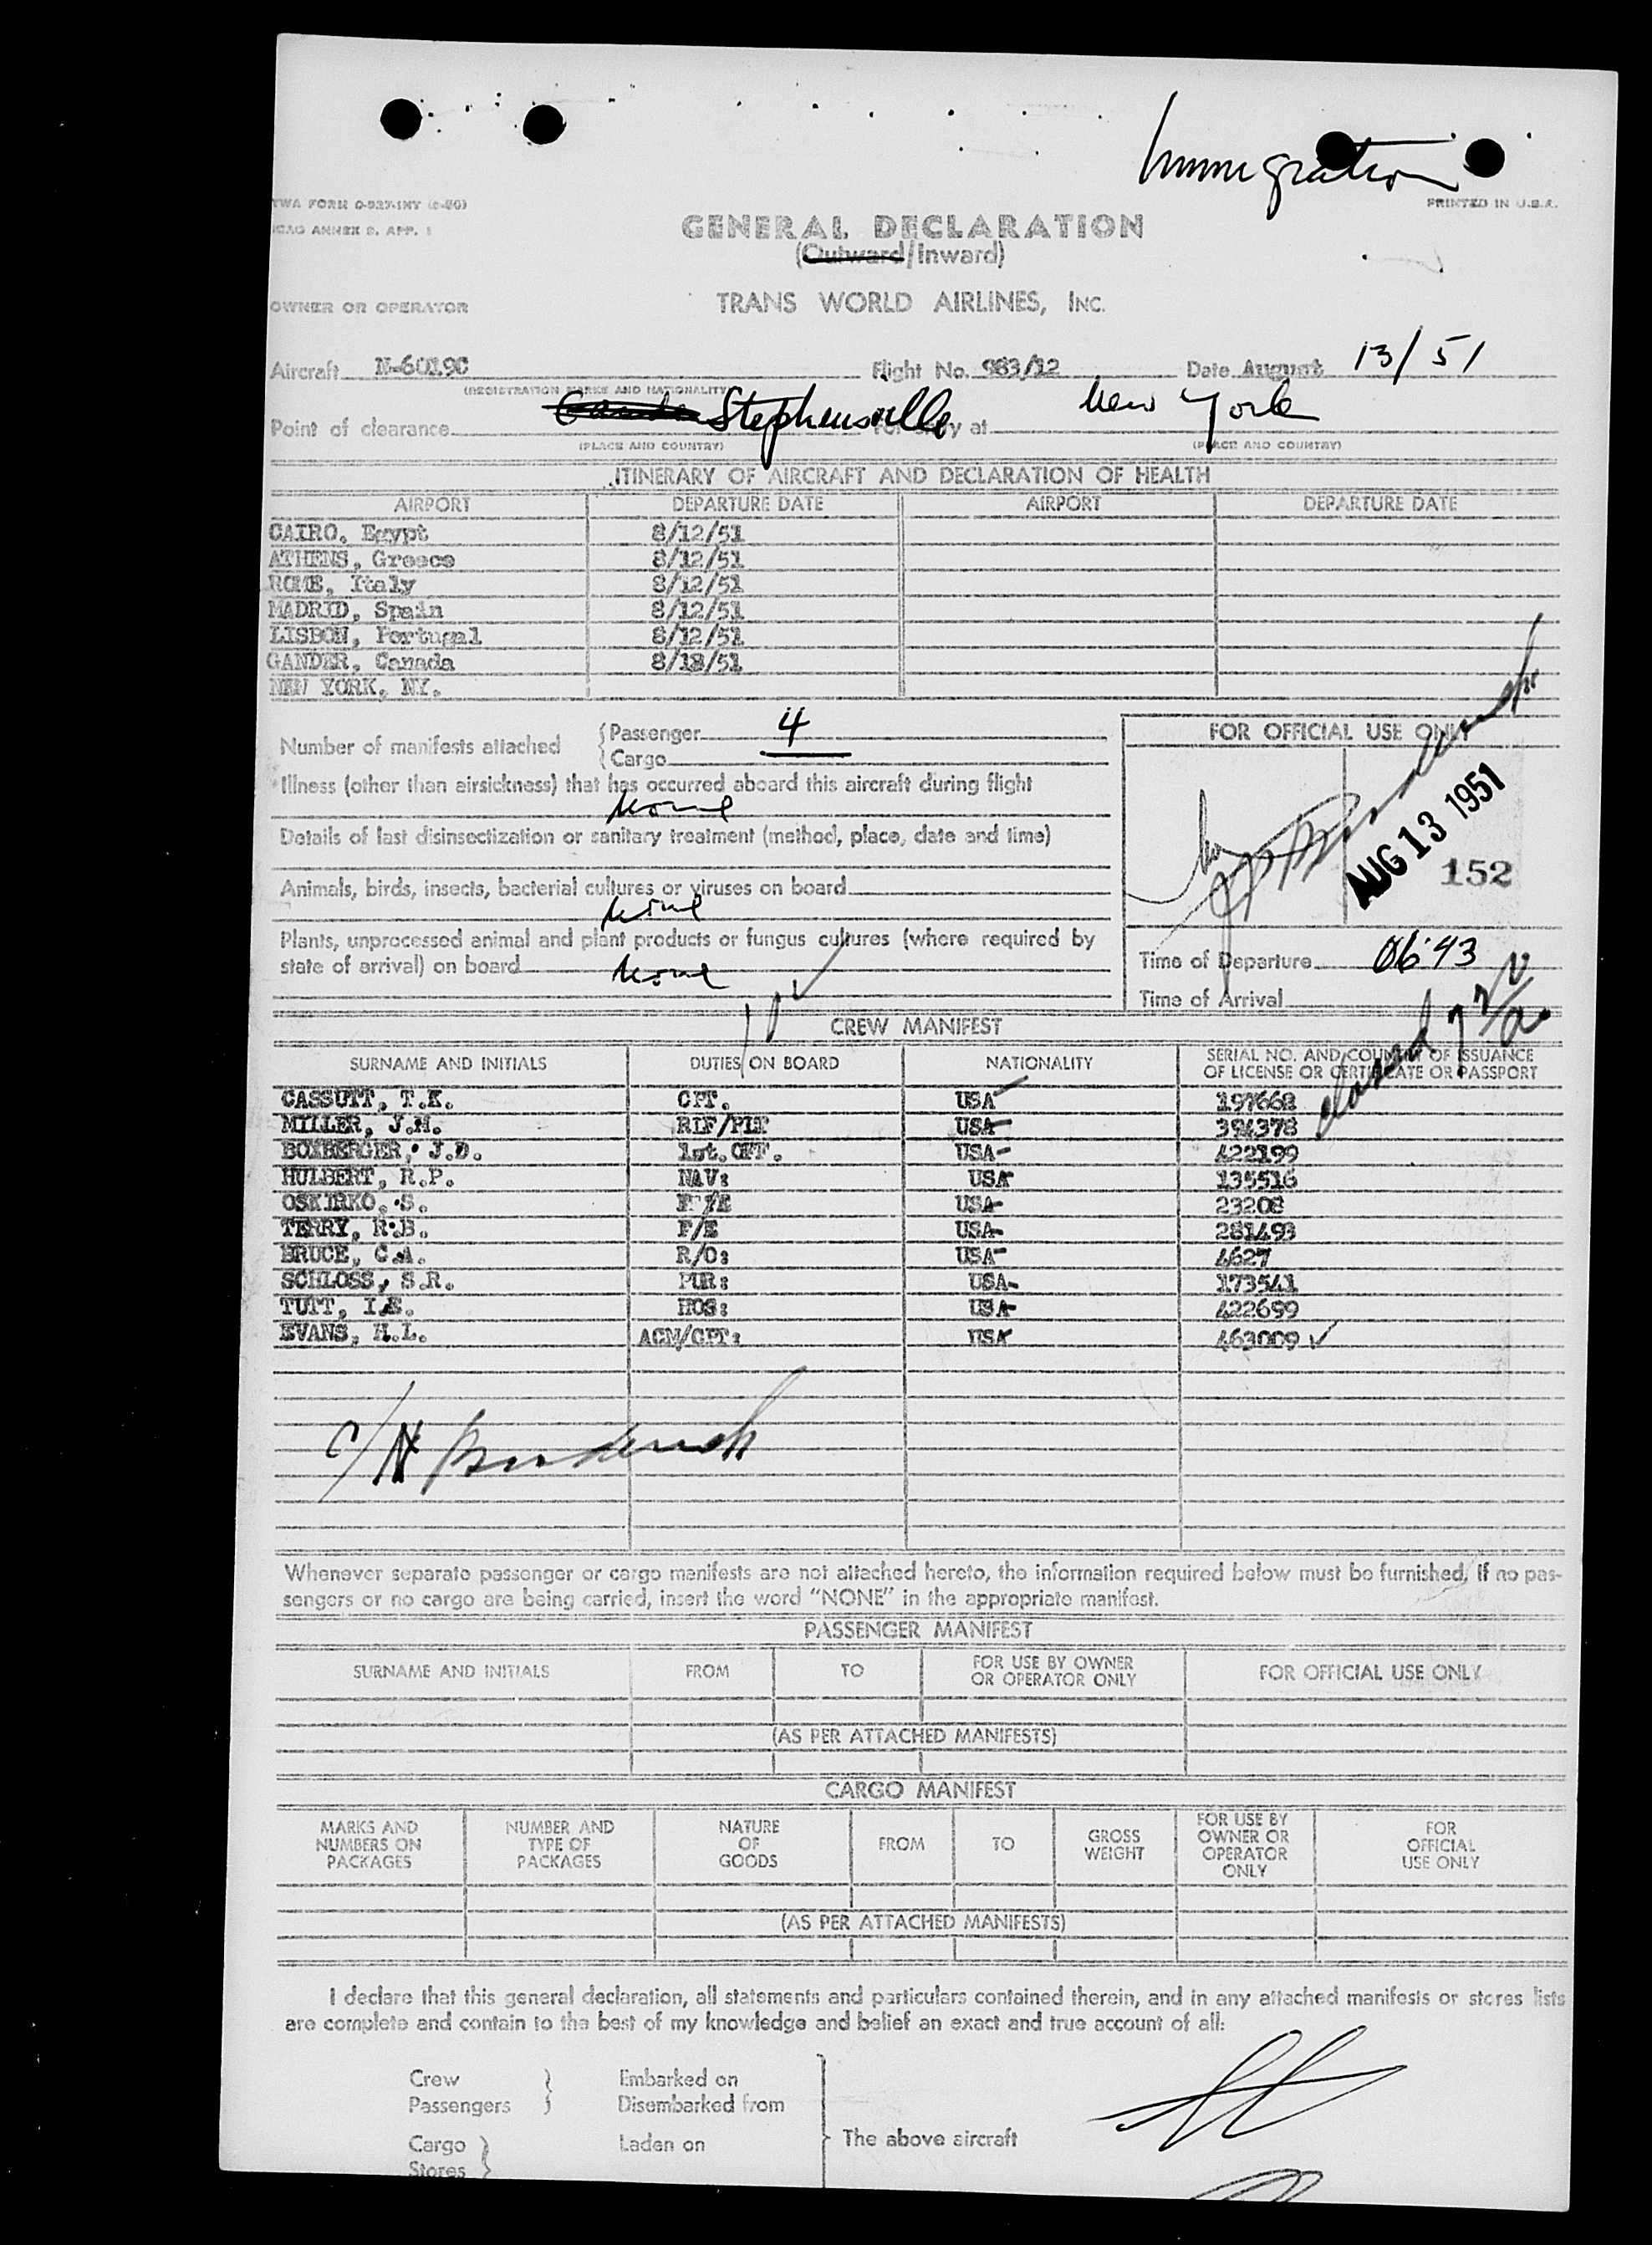 Immigration
TWA FORM O-927-INT (6-50)
PRINTED IN U.S.A.
ICAO ANNEX 9. APP. 1
GENERAL DECLARATION
(Outward/Inward)
OWNER OR OPERATOR TRANS WORLD AIRLINES, INC.
Aircraft N-6019C Flight No. 983/12 Date August 13/51
(REGISTRATION MARKS AND NATIONALITY)
Point of clearance Stephensville For entry at New York
(PLACE AND COUNTRY) (PLACE AND COUNTRY)
ITINERARY OF AIRCRAFT AND DECLARATION OF HEALTH
AIRPORT DEPARTURE DATE AIRPORT DEPARTURE DATE
CAIRO, Egypt 8/12/51
ATHENS, Greece 8/12/51
ROME, Italy 8/12/51
MADRID, Spain 8/12/51
LISBON, Portugal 8/12/51
GANDER, Canada
NEW YORK, NY.
Number of manifests attached { Passenger 4
{ Cargo
FOR OFFICIAL USE ONLY
Illness (other than airsickness) that has occurred aboard this aircraft during flight
None
Details of last disinsectization or sanitary treatment (method, place, date and time)
AUG 13 1951
152
Animals, birds, insects, bacterial cultures or viruses on board
None
Plants, unprocessed animal and plant products or fungus cultures (where required by
state of arrival) on board None
Time of Departure 0643
Time of Arrival
CREW MANIFEST
closed
SURNAME AND INITIALS DUTIES ON BOARD NATIONALITY SERIAL NO. AND COUNTRY OF ISSUANCE OF LICENSE OR CERTIFICATE OR PASSPORT
CASSUTT, T.K. CPT. USA 197668
MILLER, J.M. RLF/PLT USA 394378
BOXBERGER, J.D. 1st. OFF. USA 422199
HULBERT, R.P. NAV: USA 135516
OSKIRKO, S. USA 23208
TERRY, R.B. F/E USA 281493
BRUCE, C.A. R/O: USA 4627
SCHLOSS, S.R. PUR: USA 173541
TUTT, I.E. HOS: USA 422699
EVANS, H.L. ACM/CPT: USA 463009 ✓
Whenever separate passenger or cargo manifests are not attached hereto, the information required below must be furnished, If no pas-
sengers or no cargo are being carried, insert the word "NONE" in the appropriate manifest.
PASSENGER MANIFEST
SURNAME AND INITIALS FROM TO FOR USE BY OWNER OR OPERATOR ONLY FOR OFFICIAL USE ONLY
(AS PER ATTACHED MANIFESTS)
CARGO MANIFEST
MARKS AND NUMBERS ON PACKAGES NUMBER AND TYPE OF PACKAGES NATURE OF GOODS FROM TO GROSS WEIGHT FOR USE BY OWNER OR OPERATOR ONLY FOR OFFICIAL USE ONLY
(AS PER ATTACHED MANIFESTS)
I declare that this general declaration, all statements and particulars contained therein, and in any attached manifests or stores lists
are complete and contain to the best of my knowledge and belief an exact and true account of all:
Crew } Embarked on
Passengers } Disembarked from
Cargo } Laden on The above aircraft
Stores }